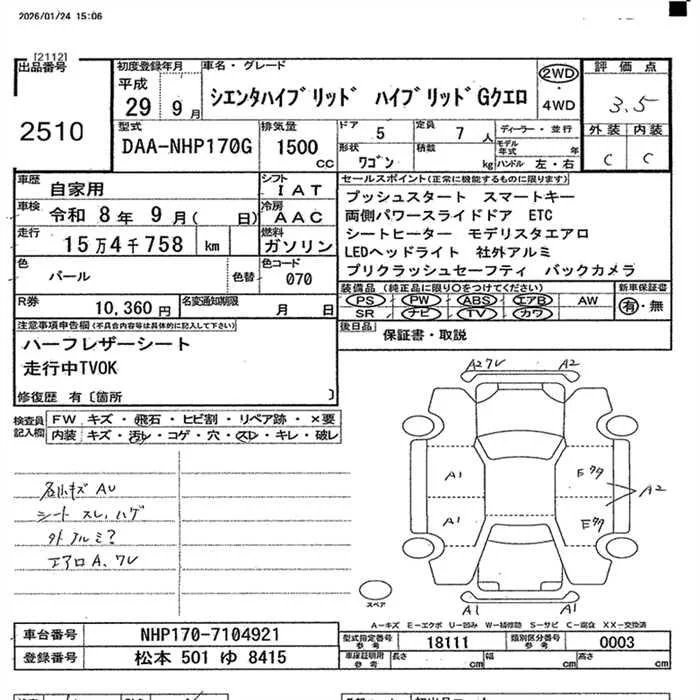 2026/01/24 15:06
[2112]
出品番号
2510
初度登録年月
平成
29 9月
車名・グレード
シエンタハイブリッド ハイブリッドGクエロ
2WD
・
4WD
評価点
3.5
外装 内装
C C
型式
DAA-NHP170G
排気量
1500
cc
ドア
5
定員
7 人
形状
ワゴン
積載
kg
ディーラー・並行
モデル年式 年
ハンドル 左・右
車歴
自家用
シフト
IAT
車検
令和 8年 9月( 日)
冷房
AAC
走行
15万4千758 km
燃料
ガソリン
色
パール
色替
色コード
070
R券
10,360円
名変通知期限
月 日
セールスポイント(正常に機能するものに限ります)
プッシュスタート スマートキー
両側パワースライドドア ETC
シートヒーター モデリスタエアロ
LEDヘッドライト 社外アルミ
プリクラッシュセーフティ バックカメラ
装備品(純正品に限り○をつけてください)
PS PW ABS エアB AW
SR ナビ TV カワ
新車保証書
有・無
後日品
保証書・取説
注意事項申告欄(不具合内容等は具体的に記入して下さい)
ハーフレザーシート
走行中TVOK
修復歴 有〔箇所 〕
検査員記入欄
FW キズ・飛石・ヒビ割・リペア跡・×要
内装 キズ・汚レ・コゲ・穴・スレ・キレ・破レ
名小キズ AU
シート スレ、ハゲ
外アルミ?
エアロA、ワレ
A2ワレ A2
A1
A1
A2
A1 A1
スペア
A-キズ E-エクボ U-凹み W-補修跡 S-サビ C-腐食 XX-交換済
車台番号
NHP170-7104921
登録番号
松本 501 ゆ 8415
型式指定番号
参考
18111
類別区分番号
参考
0003
車庫証明用
参考
長さ cm
幅 cm
高さ cm